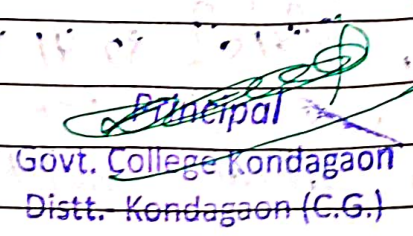 Principal
Govt. College Kondagaon
Distt.- Kondagaon (C.G.)